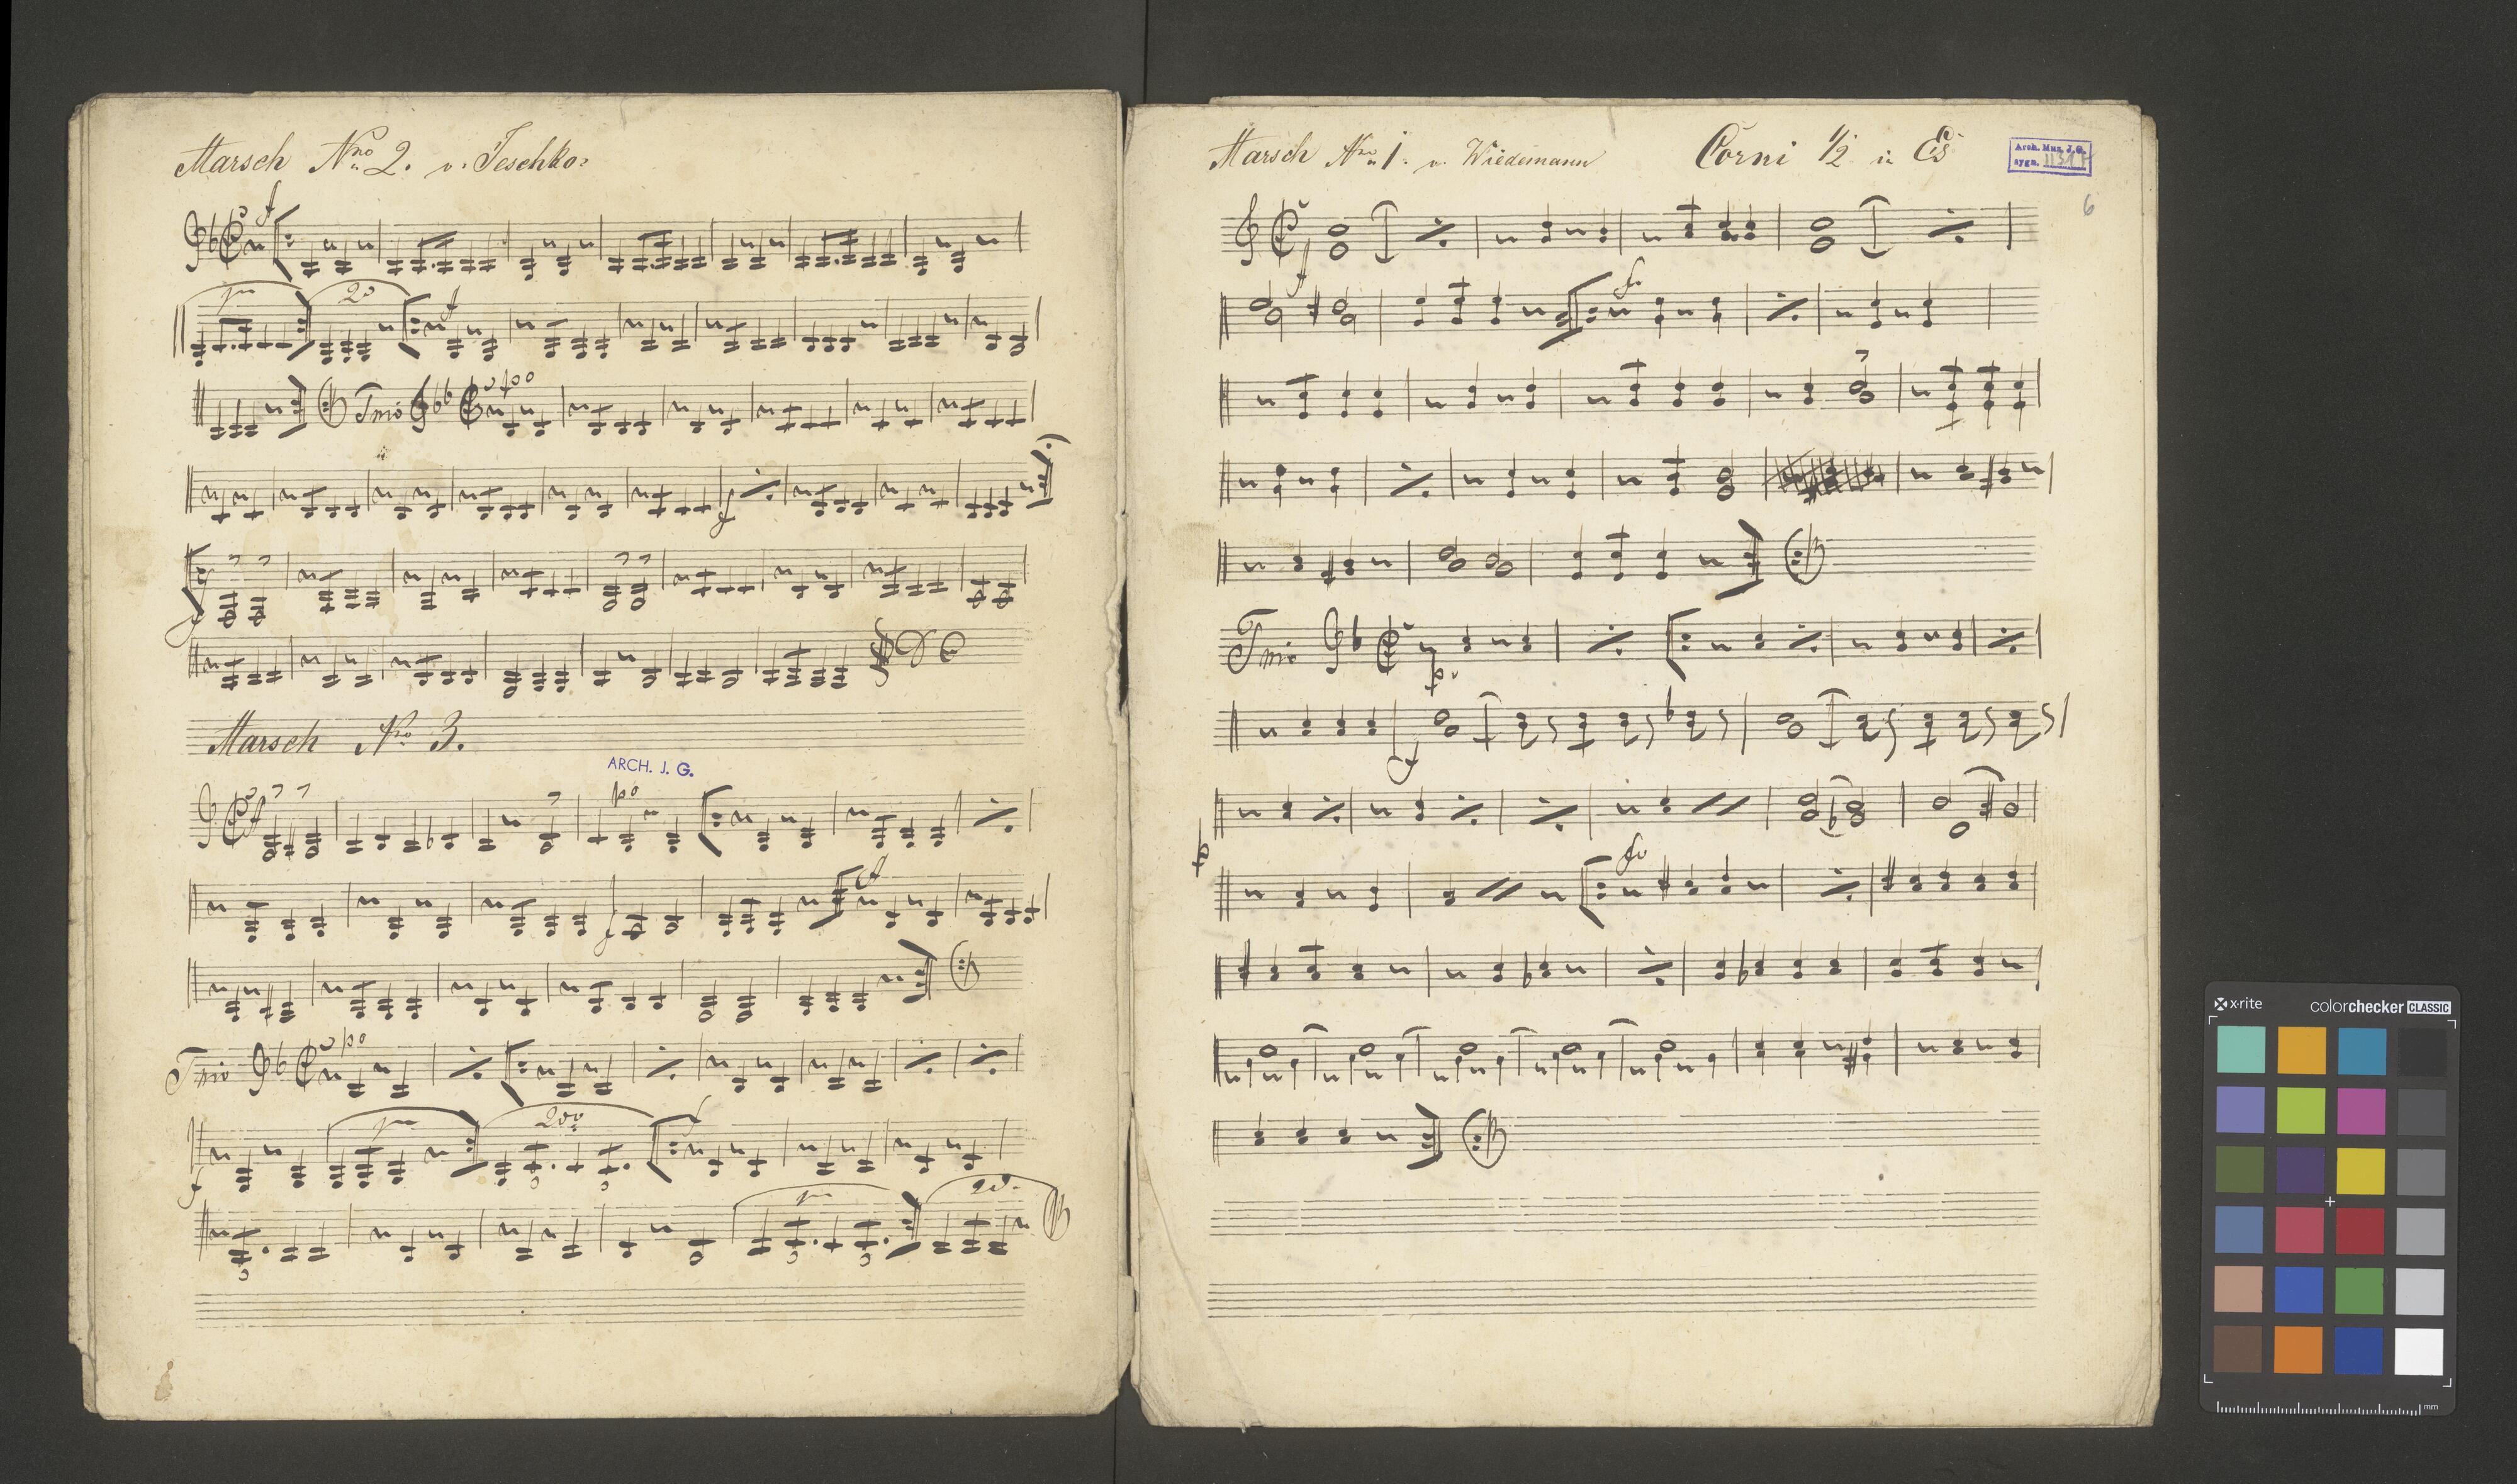 Marsch Nro 2. v. Teschko:
f
pma 2da f
Trio fpo
f
f
Marsch Nro 3.
ARCH. J. G.
f po
f
f
Trio po
pma 2do f
f
pma 2do
Marsch Nro 1. v. Wiedemann Corni 1/2 in Es
Arch. Muz. J. G.
sygn. 11317
6
f
f.
Trio p.
f
p
fo
x·rite colorchecker CLASSIC
mm